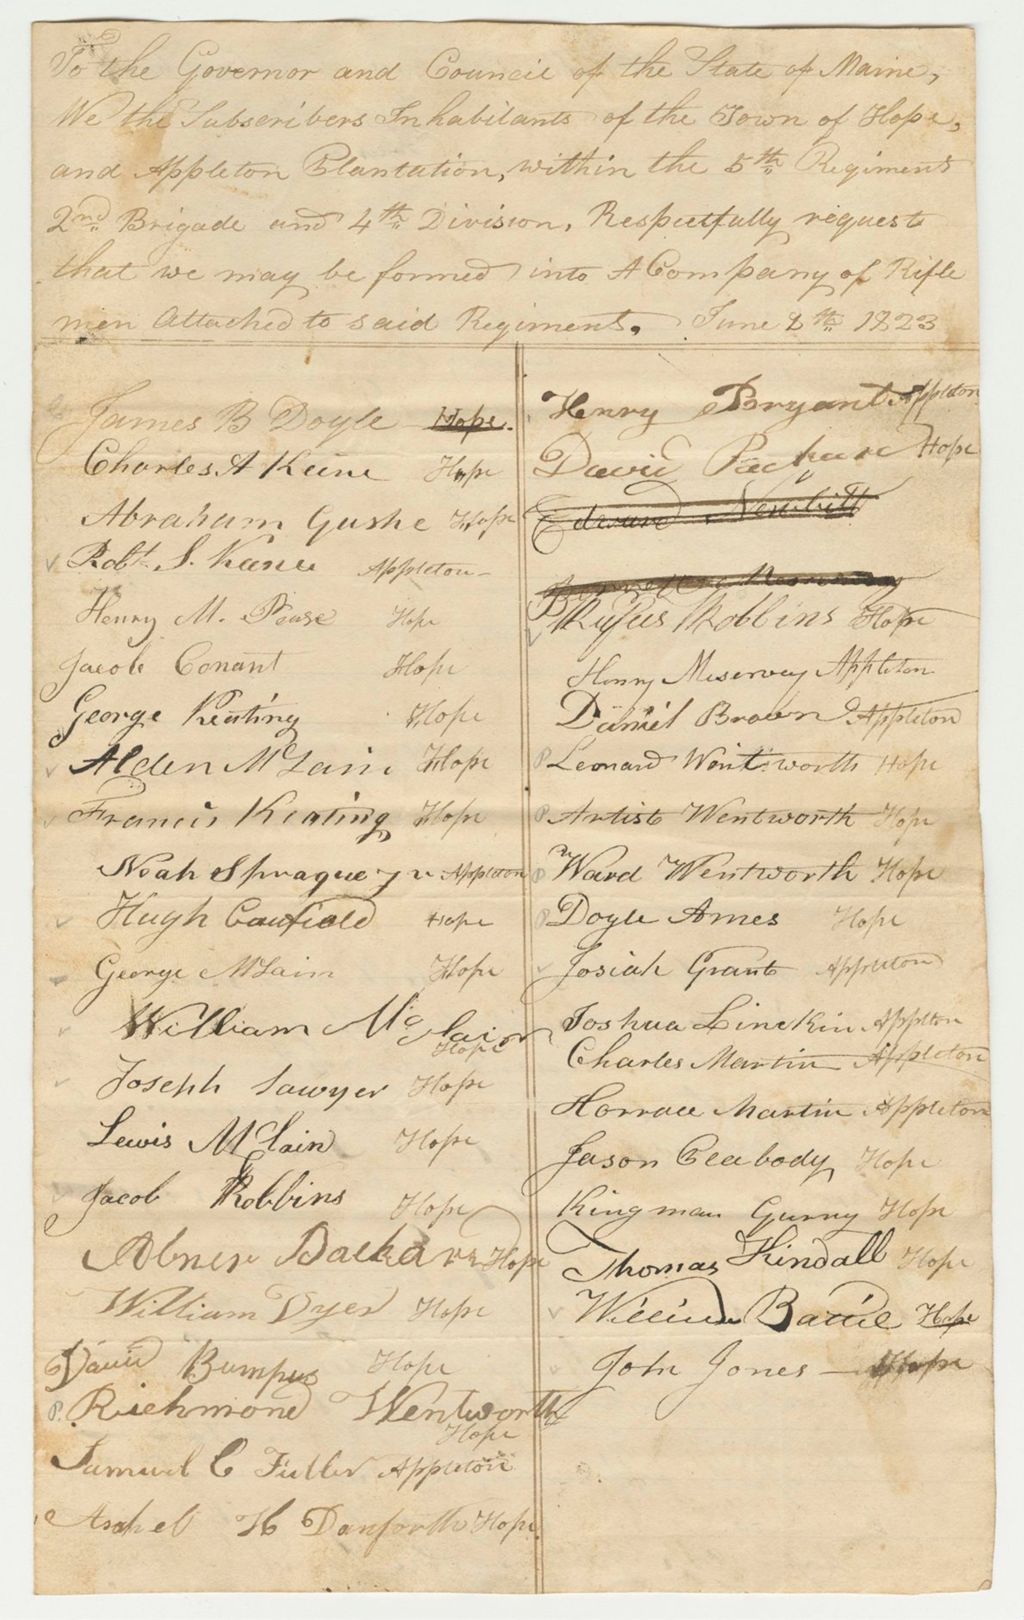 To the Governor and Council of the State of Maine,
We the Subscribers Inhabitants of the Town of Hope,
and Appleton Plantation, within the 5th Regiment
2nd Brigade and 4th Division, Respectfully request
that we may be formed into A Company of Rifle
men Attached to said Regiment. June 8th 1823
James B Doyle Hope
Charles A Keene Hope
Abraham Gushe Hope
Robt. S. Keene Appleton
Henry M. Pease Hope
Jacob Conant Hope
George Keating Hope
Alden McLain Hope
Francis Keating Hope
Noah Sprague jr Appleton
Hugh Caufield Hope
George McLain Hope
William McLain
Hope
Joseph Sawyer Hope
Lewis McLain Hope
Jacob Robbins Hope
Abner Hope
William Dyer Hope
David Bumpus Hope
P. Richmond Wentworth
Hope
Samuel C Fuller Appleton
Asahel H Danforth Hope
Henry Bryant Appleton
David Hope
Edward Newbitt
Rufus Robbins Hope
Henry Meservey Appleton
Daniel Brown Appleton
P Leonard Wentworth Hope
P Artist Wentworth Hope
P Ward Wentworth Hope
P Doyle Ames Hope
Josiah Grant Appleton
Joshua Linekin Appleton
Charles Martin Appleton
Horrace Martin Appleton
Jason Peabody Hope
Kingman Gurny Hope
Thomas Kindall Hope
William Hope
John Jones Hope